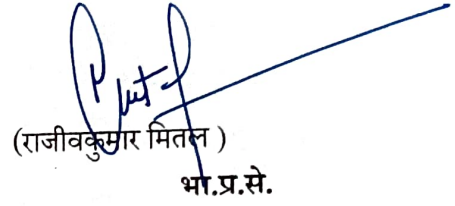 (राजीवकुमार मितल )
भा.प्र.से.